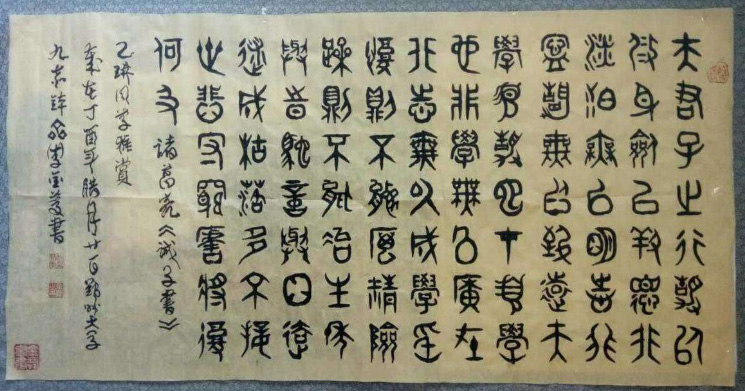 夫君子之行靜以
修身儉以養德非
淡泊無以明志非
寧靜無以致遠夫
學須靜也才須學
也非學無以廣才
非志無以成學淫
慢則不能勵精險
躁則不能治性年
與時馳意與日去
遂成枯落多不接
世悲守窮廬將復
何及 诸葛亮《诫子書》
同学雅赏
歲在丁酉年腊月廿
書